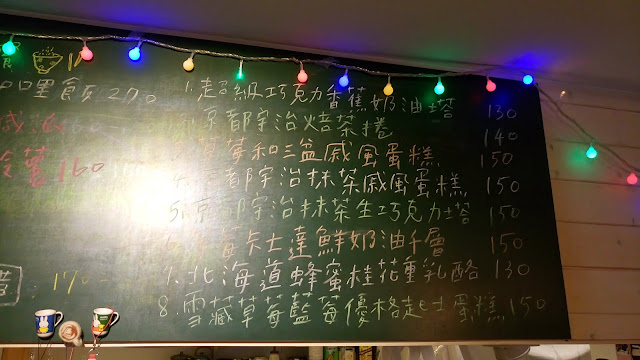 咖哩飯 270
160
170
1.超級巧克力香蕉奶油塔 130
京都宇治焙茶捲 140
草莓和三盆戚風蛋糕 150
都宇治抹茶戚風蛋糕 150
5.京都宇治抹茶生巧克力塔 150
莓卡士達鮮奶油千層 150
7.北海道蜂蜜桂花重乳酪 130
8.雪藏草莓藍莓優格起士蛋糕 150